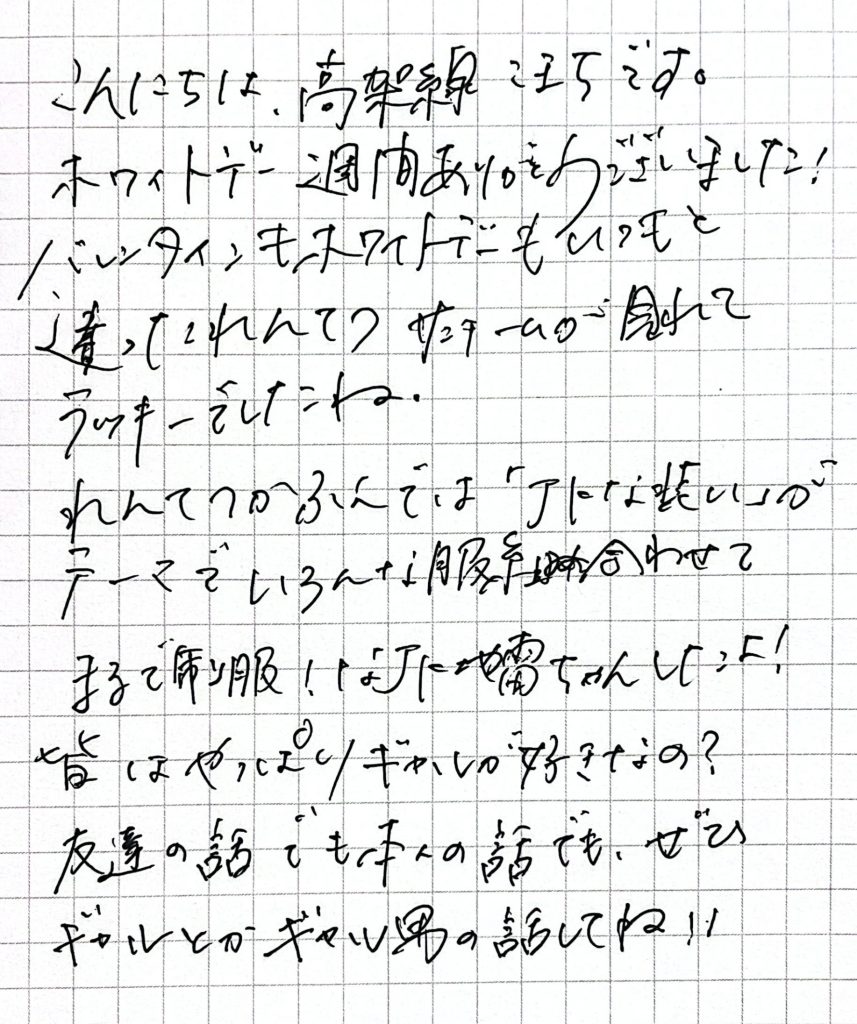 こんにちは、高架線 こまちです。
ホワイトデー週間ありがとうございました！
バレンタインもホワイトデーもいつもと
違ってれんてつ 見れて
ラッキーでしたね.
れんてつかふぇでは「JKな装い」が
テーマでいろんな服組み合わせて
まるで制服！なJK地雷ちゃんしたよ！
皆はやっぱりギャルが好きなの？
友達の話でも本人の話でも、ぜひ
ギャルとかギャル男の話してね!!